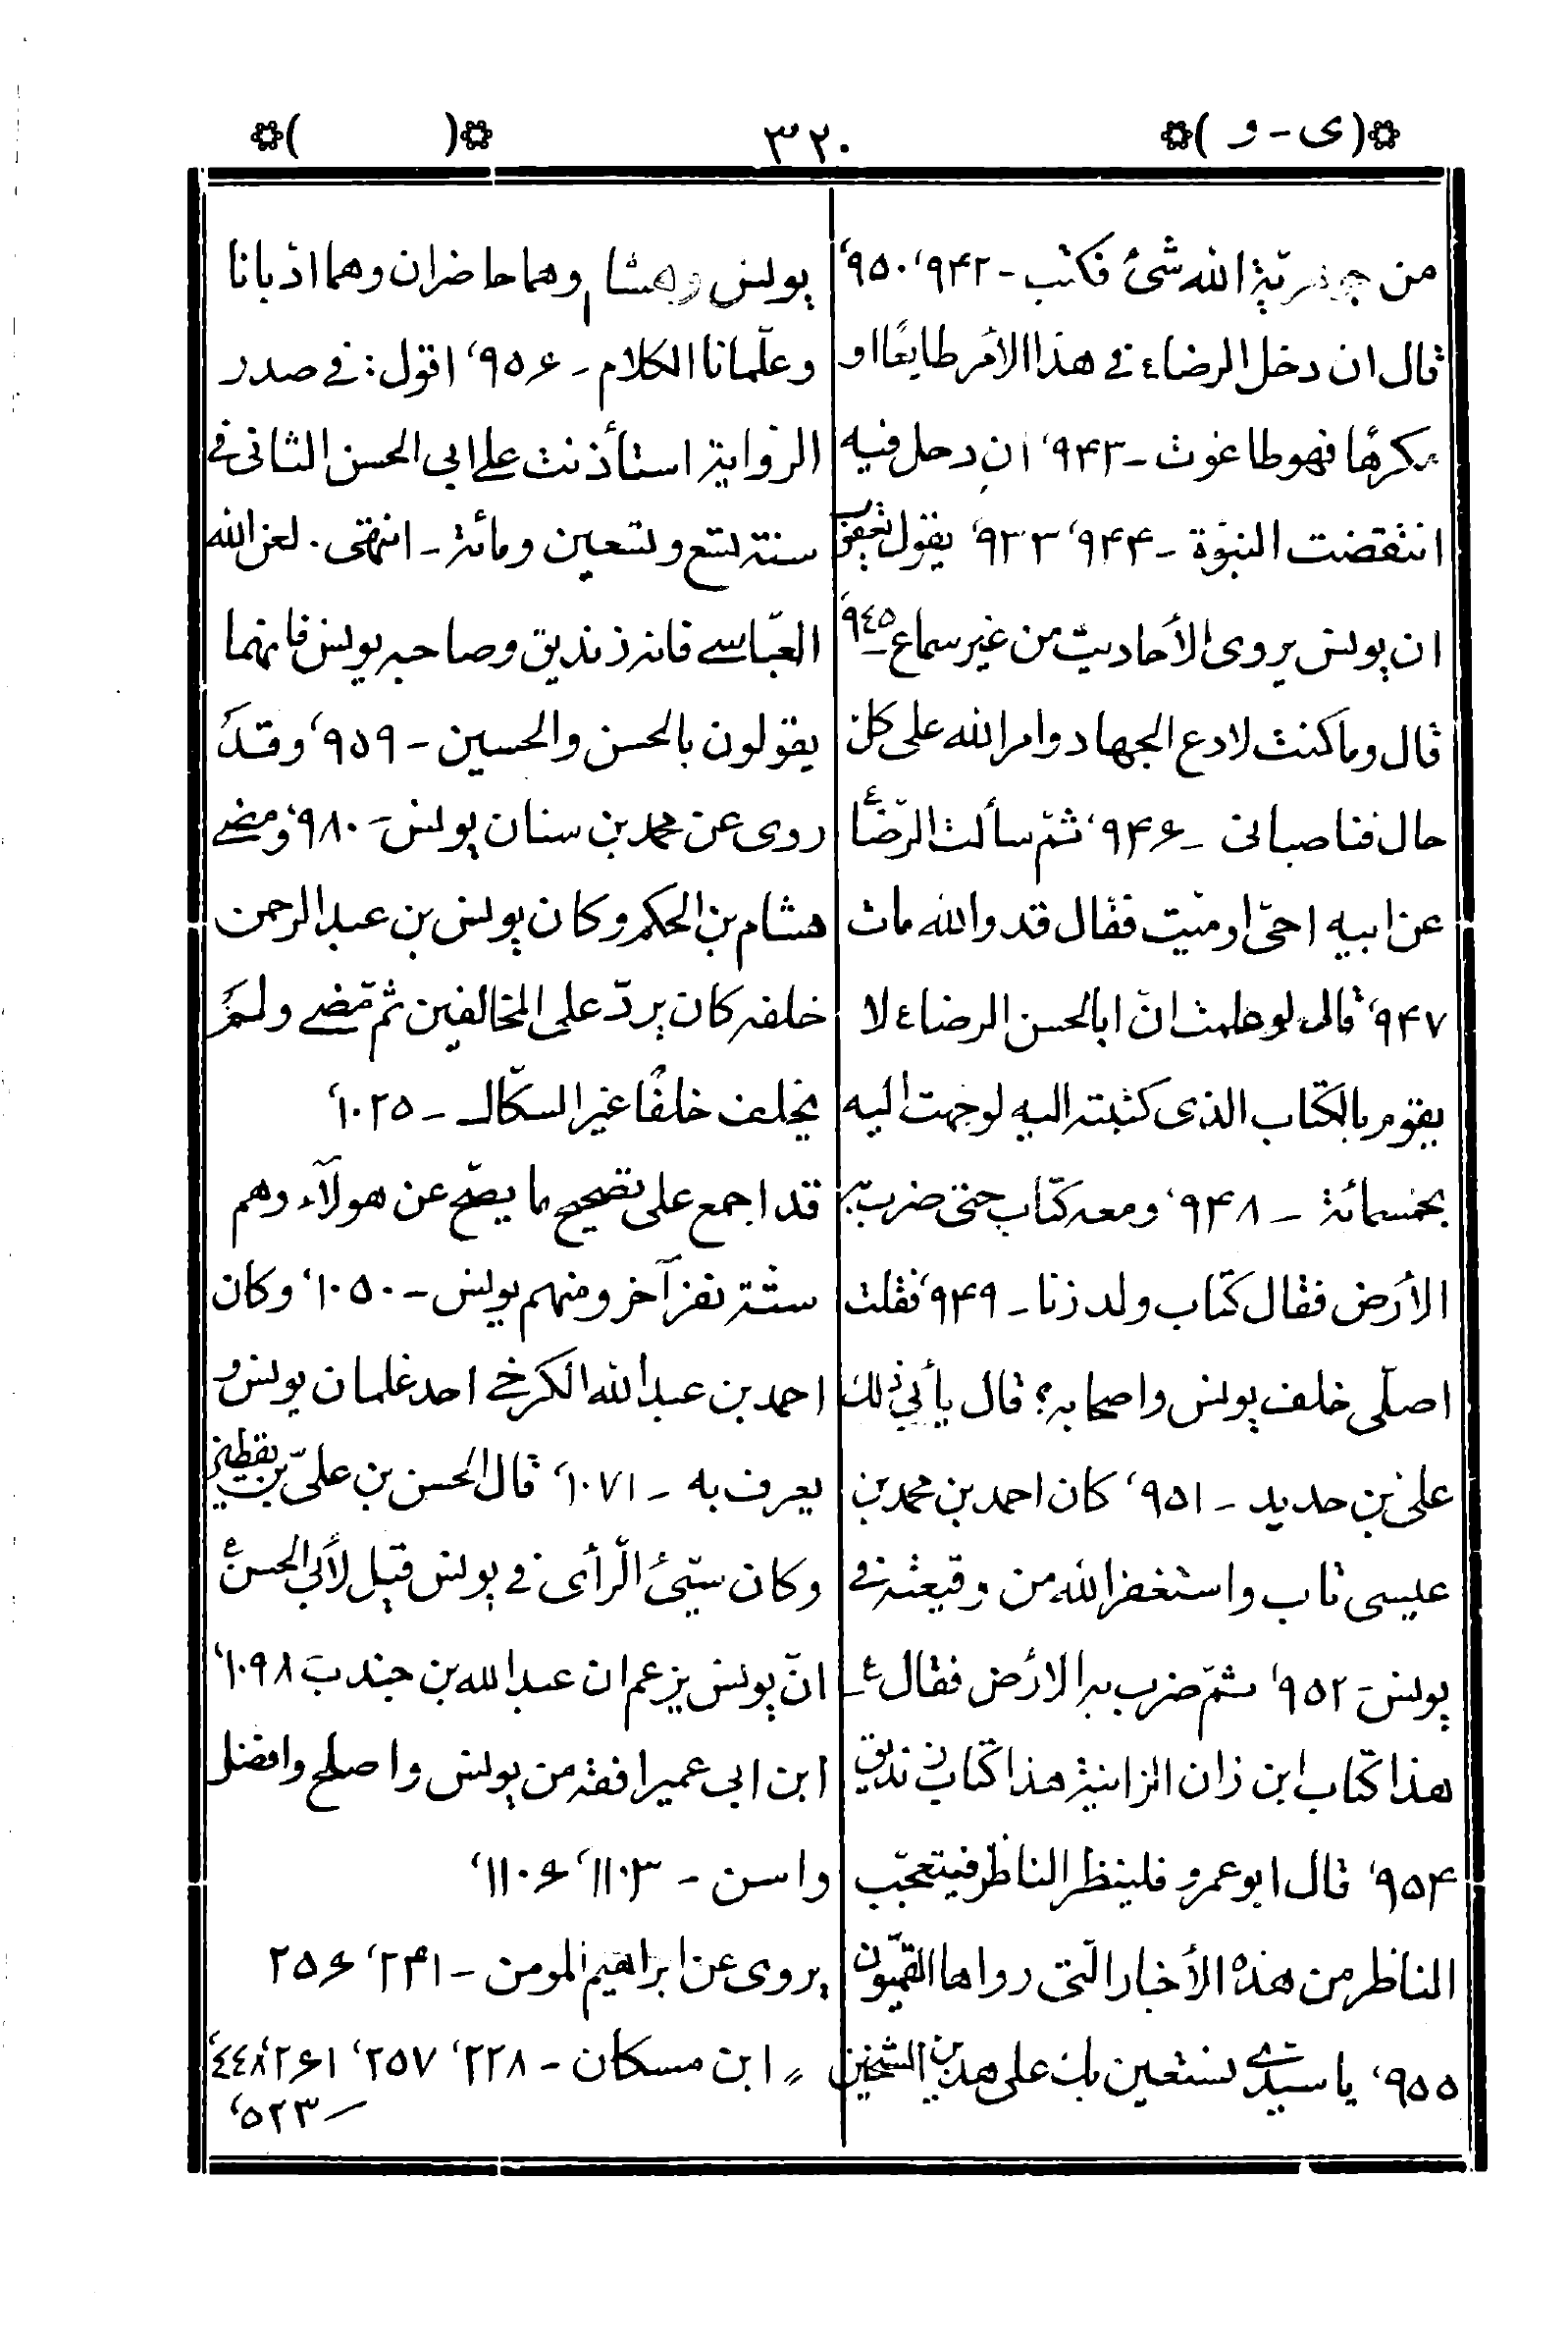 (ى - و)
٣٢٠
( )
من جوهريّة الله شئ فكتب - ٩٤٢، ٩٥٠،
قال ان دخل الرضاء في هذا الأمر طايعًا او
مكرهًا فهو طاغوت - ٩٤٣، ان دخل فيه
انتقضت النبوّة - ٩٤٤، ٩٣٣، يقول يعقوب
ان يونس يروى الأحاديث من غير سماع - ٩٤٥
قال وما كنت لادع الجهاد وامر الله على كل
حال فناصبانى - ٩٤۶، ثمّ سألت الرّضاء
عن ابيه احىّ او ميّت فقال قد والله مات
٩٤٧، قال لو علمت انّ ابا الحسن الرضاء لا
يقوم بالكتاب الذى كتبته اليه لوجهت اليه
بخمسمائة - ٩٤٨، ومعه كتاب حتى ضرب به
الأرض فقال كتاب ولد زنا - ٩٤٩، فقلت
اصلّى خلف يونس واصحابه؟ قال يأبى ذلك
على بن حديد - ٩٥١، كان احمد بن محمد بن
عيسى تاب واستغفر الله من وقيعته في
يونس - ٩٥٢، ثمّ ضرب به الأرض فقال ع -
هذا كتاب ابن زان الزانية هذا كتاب زنديق
٩٥٤، قال ابو عمرو فلينظر الناظر فيتعجّب
الناظر من هذه الأخبار الّتى رواها القميّون
٩٥٥، يا سيدى نستعين بك على هذين الشيخين
يونس وهشام وهما حاضران وهما ادّبانا
وعلّمانا الكلام - ٩٥۶، اقول: في صدر
الرّواية استأذنت على ابى الحسن الثانى في
سنة تسع وتسعين ومائة - انتهى. لعن الله
العبّاسى فانه زنديق وصاحبه يونس فانهما
يقولون بالحسن والحسين - ٩٥٩، وقد
روى عن محمد بن سنان يونس - ٩٨٠، ومضى
هشام بن الحكم وكان يونس بن عبد الرحمن
خلفه كان يردّ على المخالفين ثمّ مضى ولم
يخلف خلفًا غير السكّاك - ١٠٢٥،
قد اجمع على تصحيح ما يصحّ عن هولآء وهم
ستّة نفر آخر ومنهم يونس - ١٠٥٠، وكان
احمد بن عبد الله الكرخى احد غلمان يونس و
يعرف به - ١٠٧١، قال الحسن بن علىّ بن يقطين
وكان سيّئ الرّأى في يونس قيل لأبى الحسن ع
انّ يونس يزعم ان عبد الله بن جندب ١٠٩٨،
ابن ابى عمير افقه من يونس واصلح وافضل
واسن - ١١٠٣، ١١٠۶،
يروى عن ابراهيم المومن - ٢٤١، ٢٥۶
〃 ابن مسكان - ٢٢٨، ٢٥٧، ٢۶١، ٤٤٨،
- ٥٢٣،